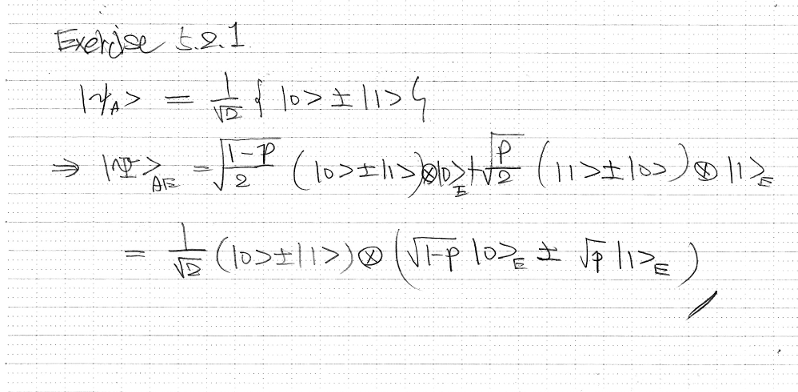 Exercise 5.2.1
|ψ_A> = 1/√2 { |0> ± |1> }
⇒ |Ψ>_AE = √((1-p)/2) (|0> ± |1>) ⊗ |0>_E + √(p/2) (|1> ± |0>) ⊗ |1>_E
= 1/√2 (|0> ± |1>) ⊗ (√(1-p) |0>_E ± √p |1>_E)